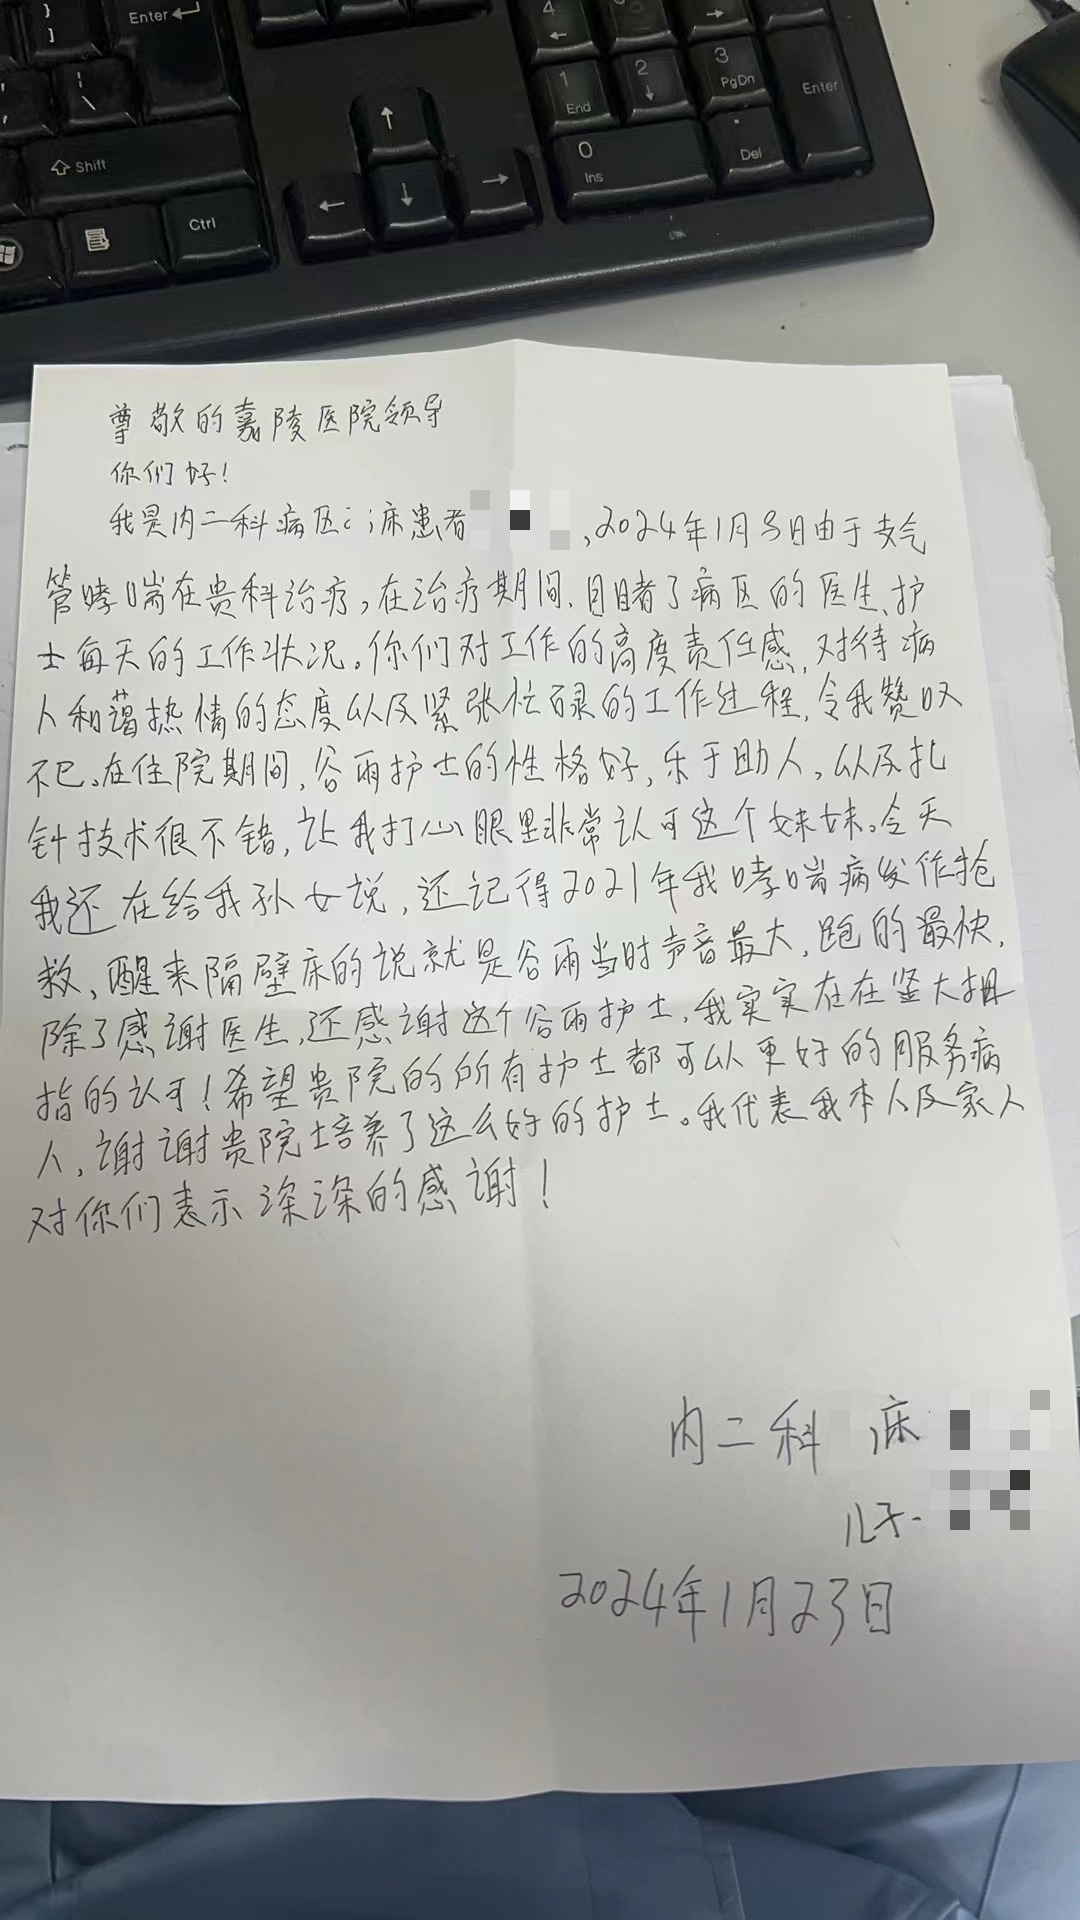 }
]
Enter
4
1
End
2
3
PgDn
Enter
|
\
Shift
0
Ins
.
Del
Ctrl
尊敬的嘉陵医院领导
你们好！
我是内二科病区 床患者 ，2024年1月8日由于支气
管哮喘在贵科治疗，在治疗期间，目睹了病区的医生、护
士每天的工作状况。你们对工作的高度责任感，对待病
人和蔼热情的态度以及紧张忙碌的工作过程，令我赞叹
不已。在住院期间，谷雨护士的性格好，乐于助人，以及扎
针技术很不错，让我打心眼里非常认可这个妹妹。今天
我还在给我孙女说，还记得2021年我哮喘病发作抢
救，醒来隔壁床的说就是谷雨当时声音最大，跑的最快，
除了感谢医生，还感谢这个谷雨护士，我实实在在竖大拇
指的认可！希望贵院的所有护士都可以更好的服务病
人，谢谢贵院培养了这么好的护士。我代表我本人及家人
对你们表示深深的感谢！
内二科 床
儿子.
2024年1月23日